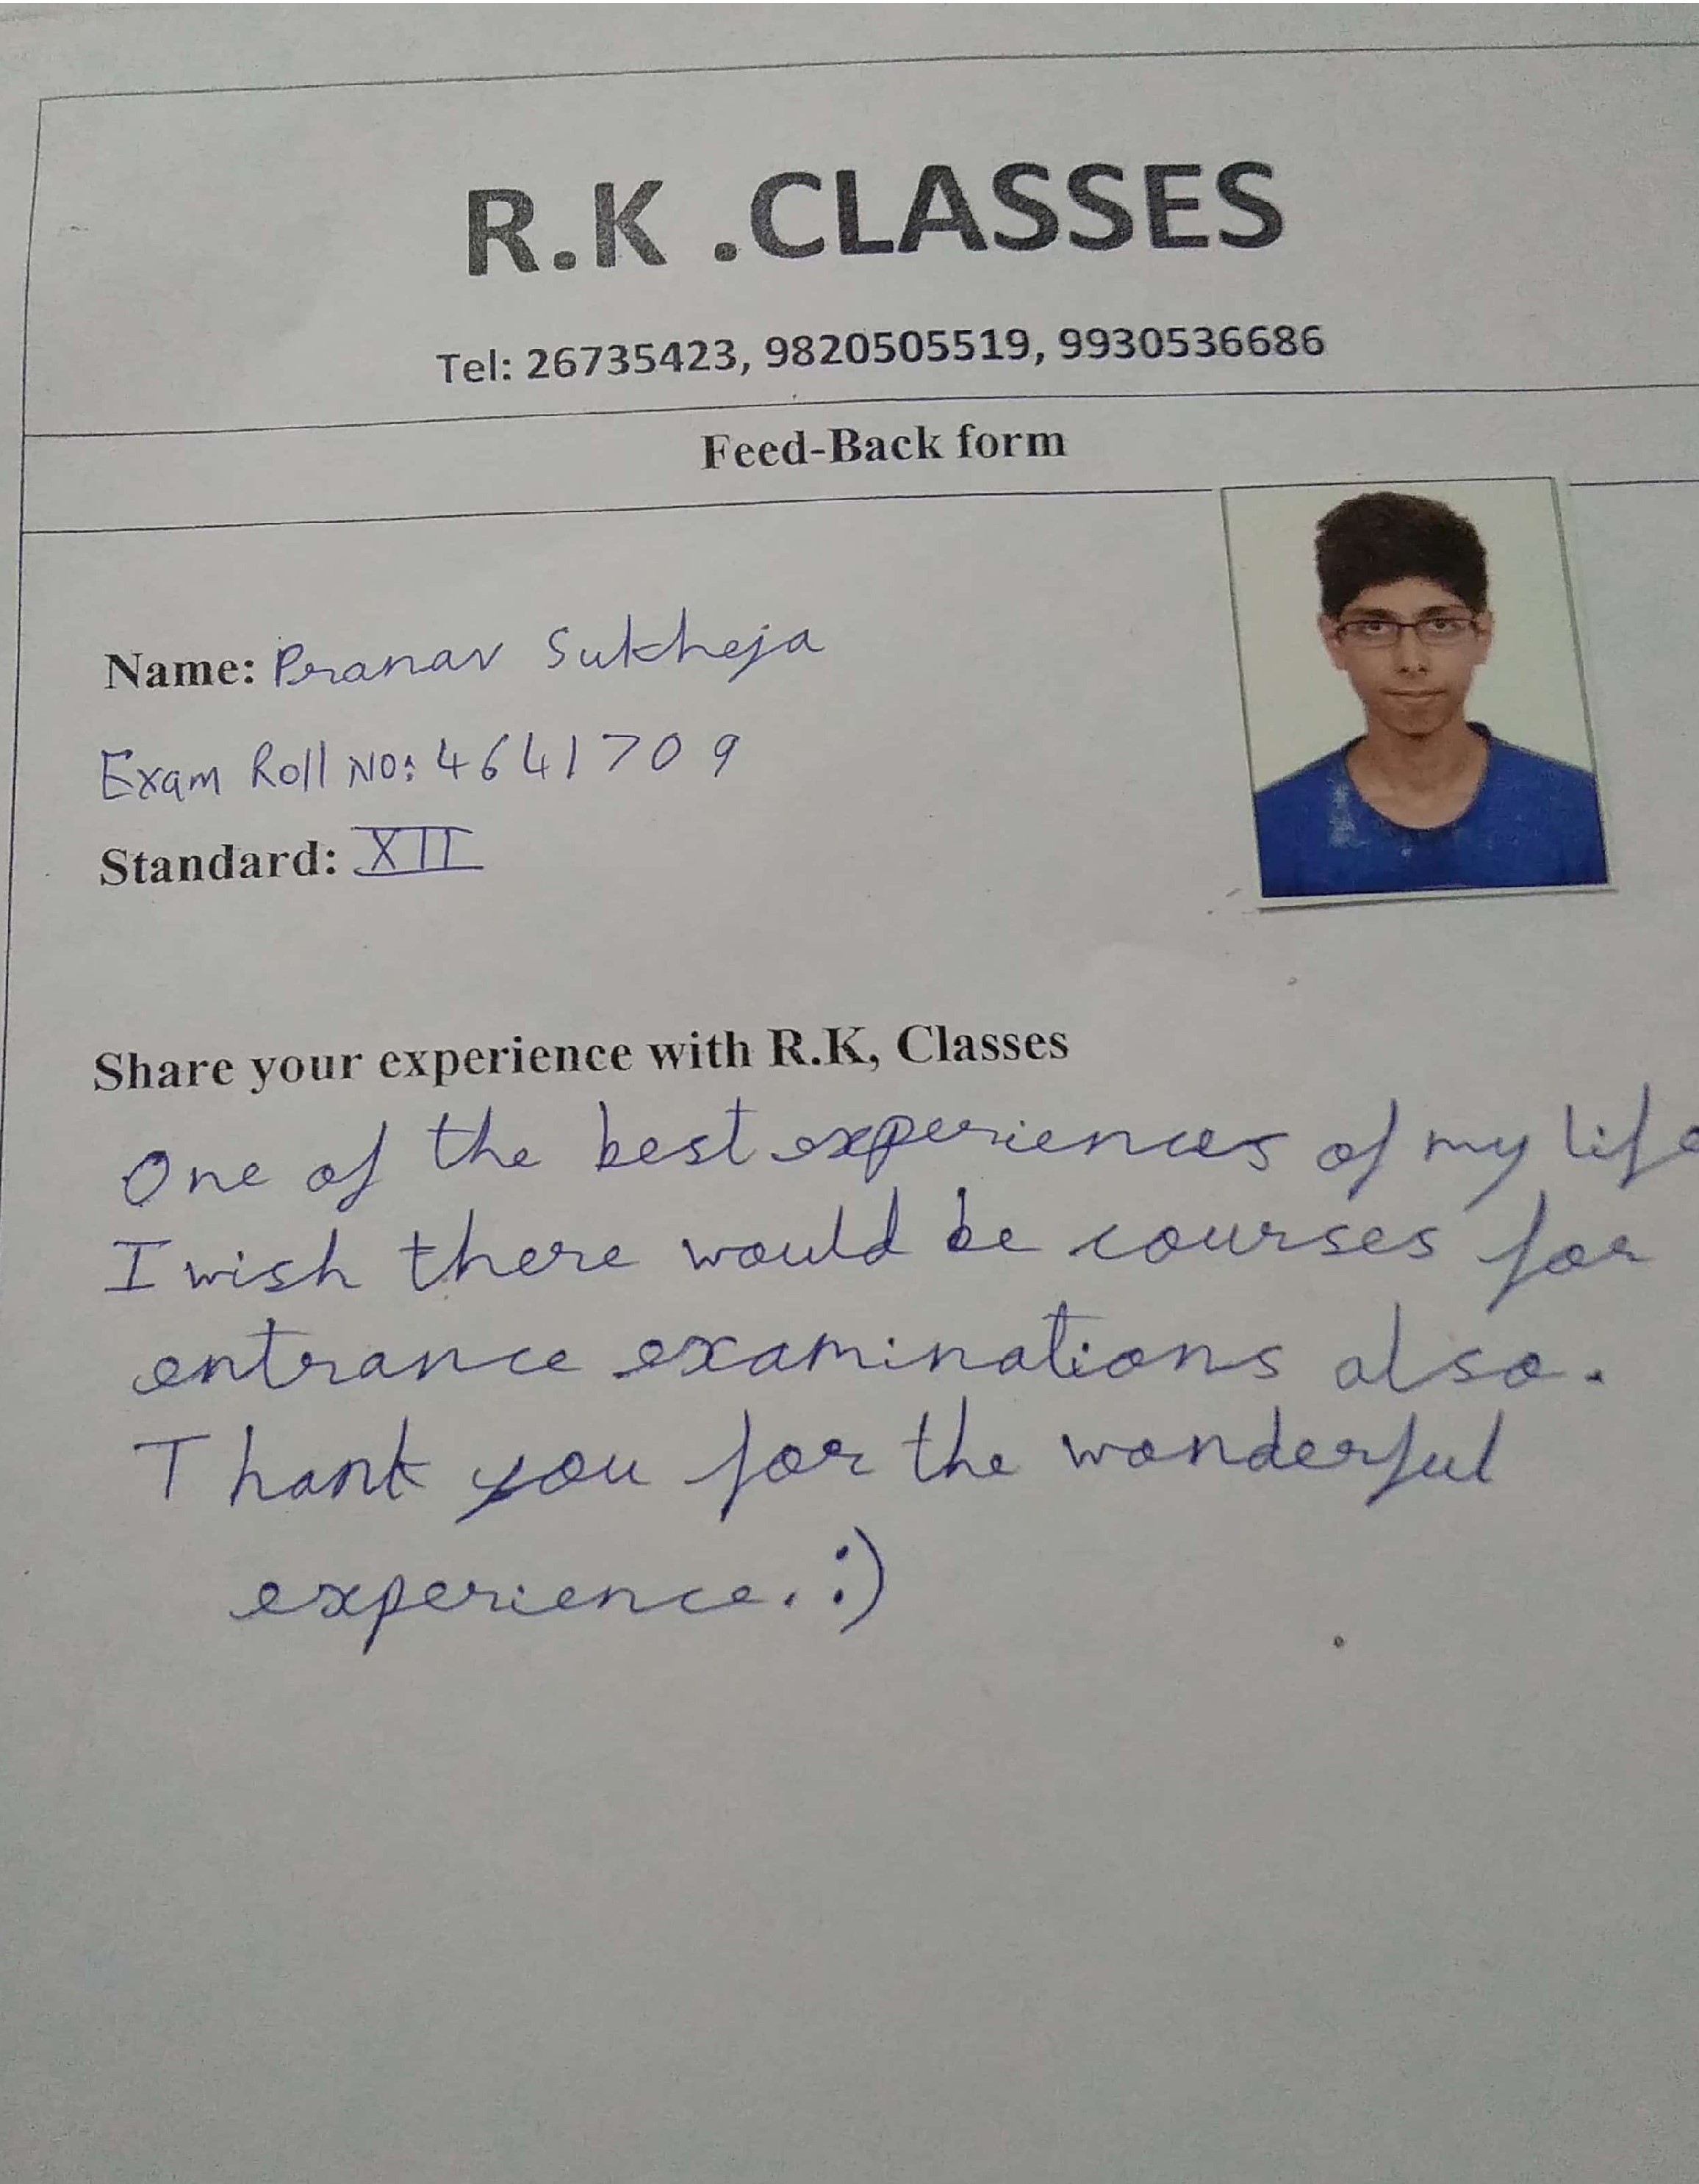 R.K .CLASSES
Tel: 26735423, 9820505519, 9930536686
Feed-Back form
Name: Pranav Sukheja
Exam Roll NO: 4641709
Standard: XII
Share your experience with R.K, Classes
One of the best experiences of my life
I wish there would be courses for
entrance examinations also.
Thank you for the wonderful
experience. :)